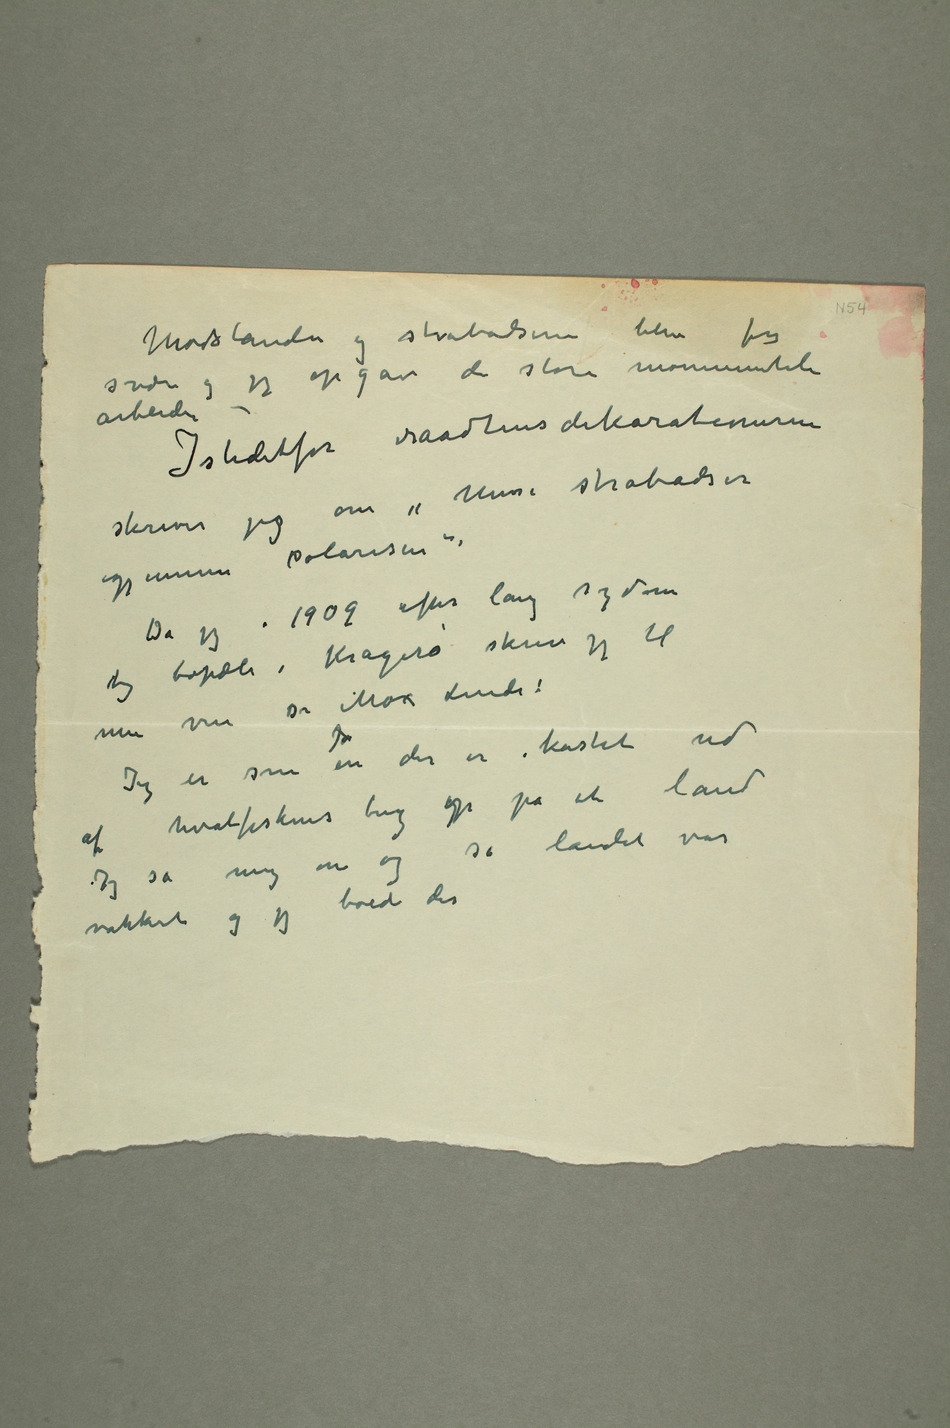 N54
Modstanden og strabadserne blev for
svære og jeg opgav de store monumentale
arbeider –
Istedetfor raadhusdekorationerne
skriver jeg om „Mine strabadser
igjennem polarisen“.
Da jeg i 1909 efter lang sydom
tog bopæl i Kragerø skrev jeg til
min ven Dr Max Linde!
Jeg er som en der er kastet ud
af hvalfiskens bug op på et land
Jeg så mig om og så landet var
vakkert og jeg boede der